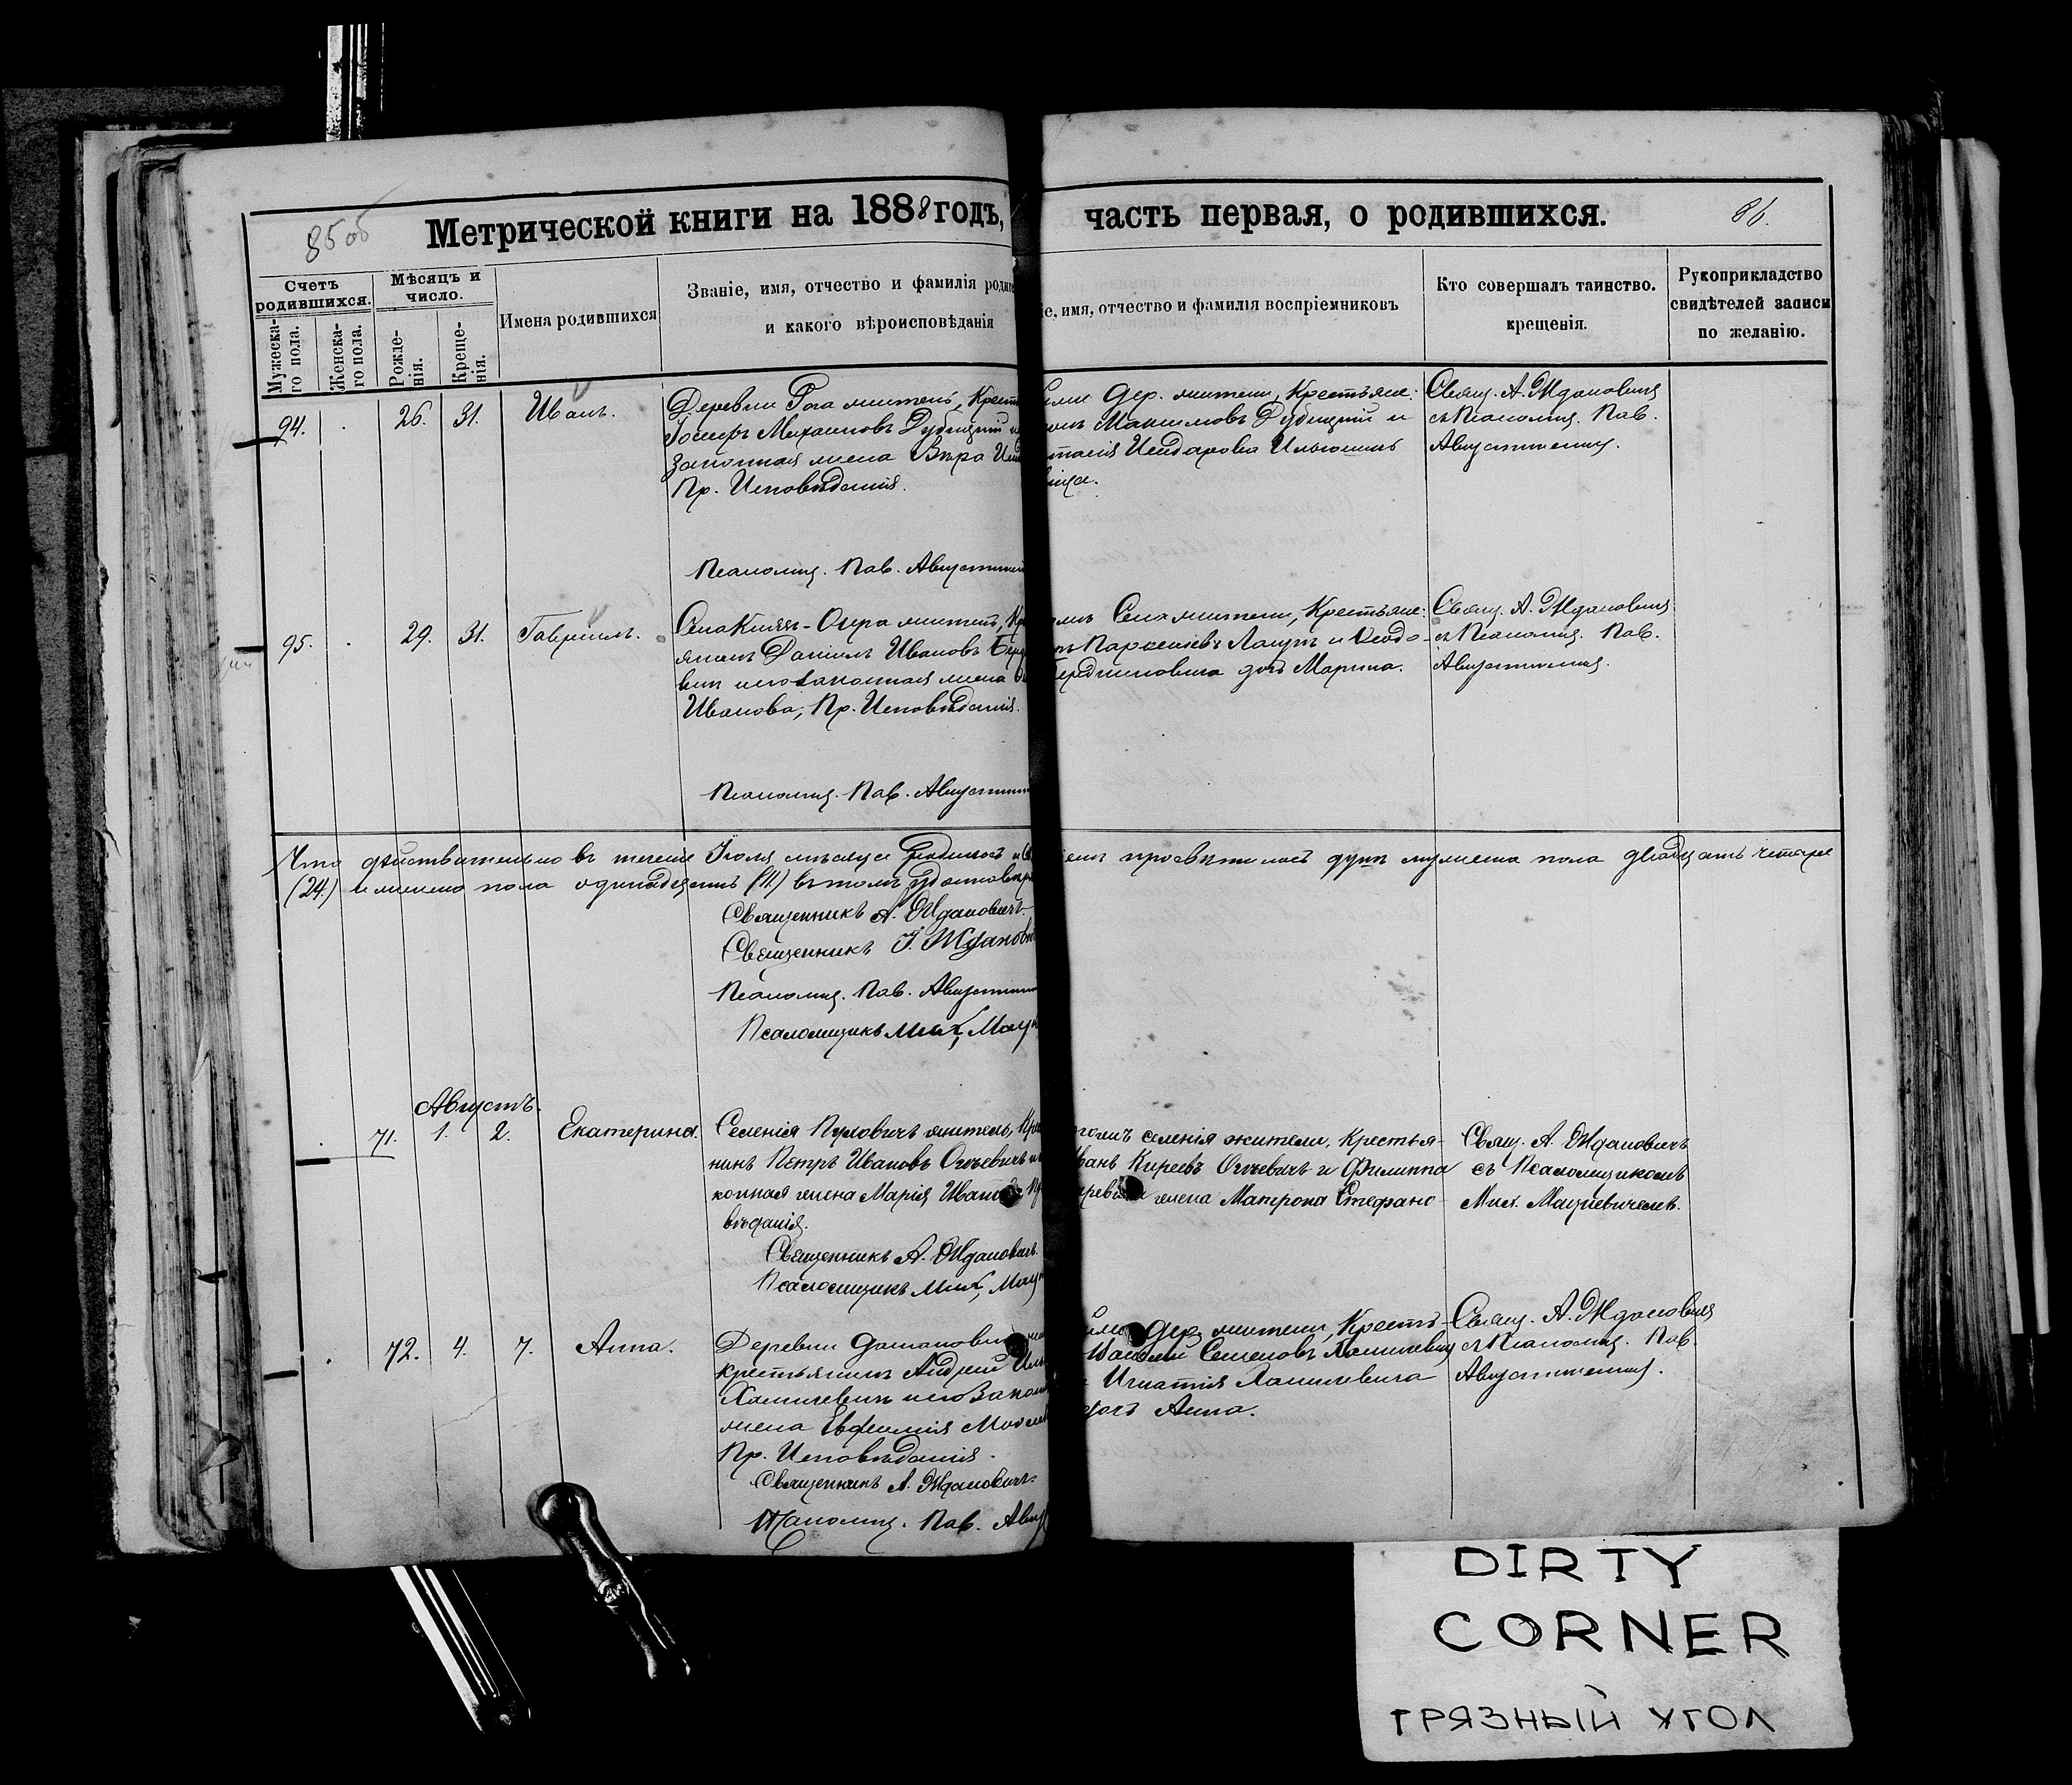 85об
Метрической книги на 1888 годъ,
часть первая, о родившихся.
86.
Счетъ родившихся.
Мужеска-го пола.
Женска-го пола.
Мѣсяцъ и число.
Рожде-нія.
Креще-нія.
Имена родившихся
Званіе, имя, отчество и фамилія родит
и какого вѣроисповѣданія
іе, имя, отчество и фамилія воспріемниковъ
Кто совершалъ таинство.
крещенія.
Рукоприкладство
свидѣтелей записи
по желанію.
94. 26. 31. Иванъ.
Деревни Гоза житель, Крест
Іосифъ Михаиловъ Дубицкій и
законная жена Вѣра
Пр. Исповѣданія.
Псаломщ. Пав. Августин
дер. жители, Крестьяне:
Максимовъ Дубицкій и
Исидорова
Свящ. А. Ждановичъ
съ Псаломщ. Пав.
95. 29. 31. Гавріилъ.
Села Князь-Озера житель, Кр
Даніилъ Ивановъ
его законная жена
Иванова, Пр. Исповѣданія.
Псаломщ. Пав. Августин
Села жители, Крестьяне:
дочь Марина.
Свящ. А. Ждановичъ
съ Псаломщ. Пав.
Что дѣйствительно въ теченіе Іюля мѣсяца родилось и св
просвѣтилось душъ мужеска пола двадцать четыре
(24) и женска пола одинадцать (11) въ томъ удостовѣр
Священникъ А. Ждановичъ.
Священникъ І. Жданов
Псаломщ. Пав. Августин
Псаломщикъ Мих. Мац
Августъ.
71. 1. 2. Екатерина.
Селенія Пузовичъ житель, Кре
нинъ Петръ Ивановъ Огіевичъ и
конная жена Марія Иван
вѣданія.
Священникъ А. Ждановичъ.
Псаломщикъ Мих. Мац
селенія жители, Крестья-
Иванъ Киреевъ Огіевичъ и Филиппа
жена Матрона Стефано-
Свящ. А. Ждановичъ
съ Псаломщикомъ
Мих. Мацкевичемъ.
72. 4. 7. Анна.
Деревни
крестьянинъ Андрей Иль
его закон
жена Евфимія
Пр. Исповѣданія.
Священникъ А. Ждановичъ.
Псаломщ. Пав. Авгу
дер. жители, Крестъ-
Василій Семеновъ
Игнатія
дочь Анна.
Свящ. А. Ждановичъ
съ Псаломщ. Пав.
DIRTY
CORNER
ГРЯЗНЫЙ УГОЛ